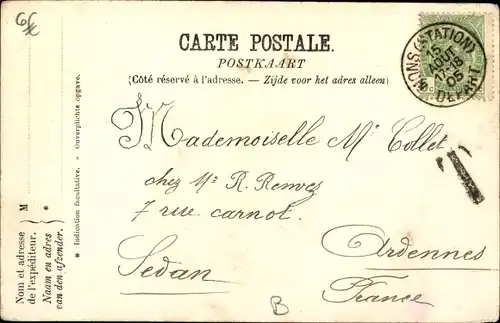 6€
CARTE POSTALE.
POSTKAART
(Côté réservé à l'adresse. — Zijde voor het adres alleen)
MONS (STATION)
15
AOUT
17-18
05
DEPART
T
Mademoiselle M. Collet
chez Mr R. Renvez
7 rue carnot.
Sedan
Ardennes
France
B
Nom et adresse de l'expéditeur. } M
Naam en adres van den afzender. } *
* Indication facultative. - Onverplichte opgave.